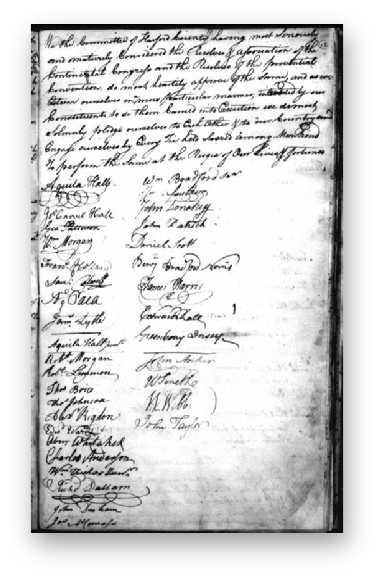 We the Committee of Harford County having most seriously
and maturely Considered the Resolves & association of the
Continental Congress and the Resolves of the provincial
Convention do most heartily approve of the Same, and as we
Esteem ourselves in a more particular manner, intrusted by our
Constituents to see them Carried into Execution we do most
Solemnly pledge ourselves to Each Other & to our Country and
Engage ourselves by Every Tie held Sacred among Mankind
To perform the Same at the Risque of Our Lives & fortunes
Aquila Hall
Wm Bradford
John Love
John Patrick
Wm Morgan
Daniel Scott
Benj Bradford Norris
James Harris
Aq Paca
Edward Hall
James Lytle
Greenbury Dorsey
Aquila Hall
Robt Morgan
John Archer
Thos Brice
Thos Johnson
W Webb
Alexr Rigdon
John Taylor
Abm Whitaker
Charles Anderson
Richd Dallam
John Durham